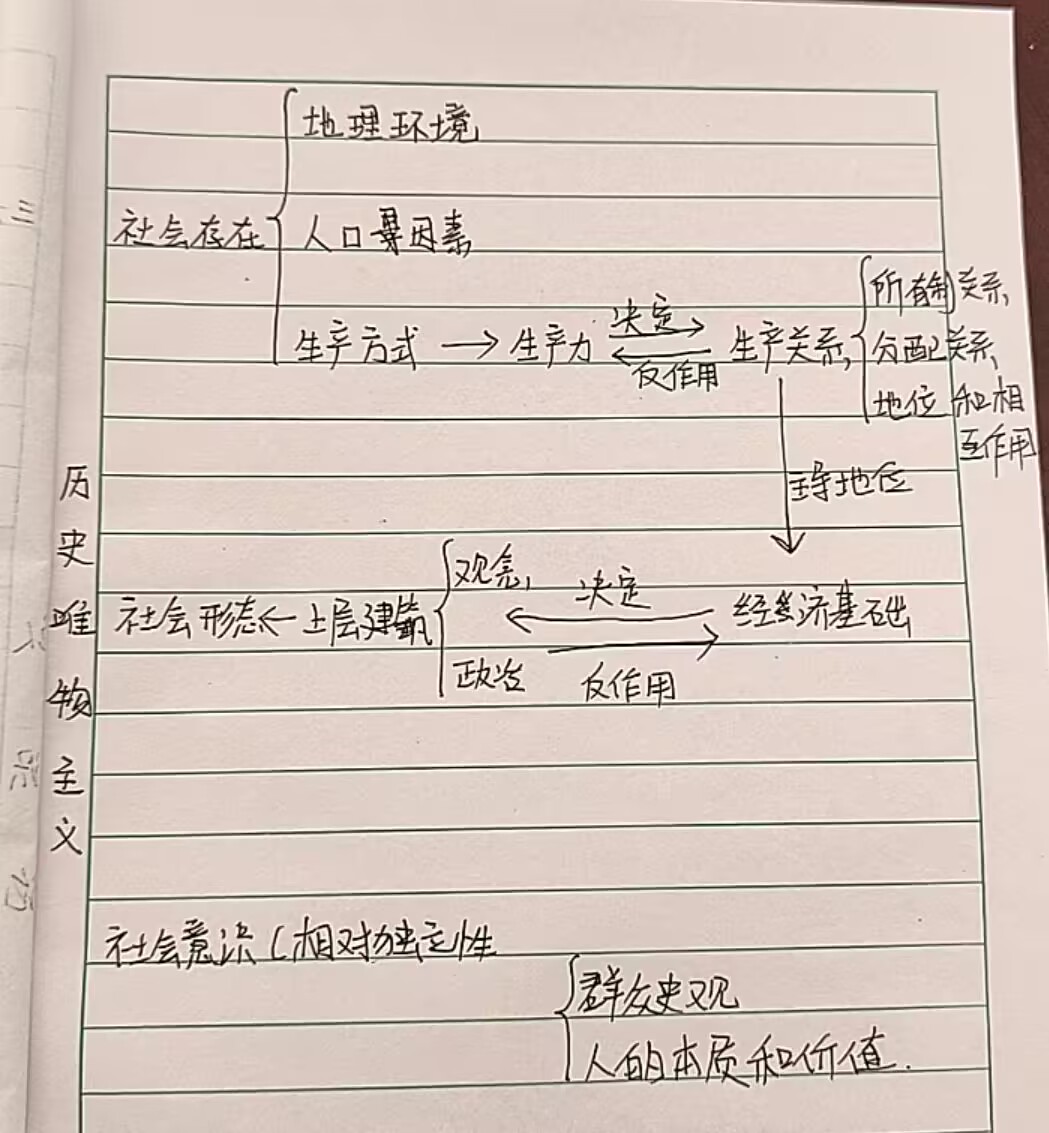 地理环境
社会存在
人口因素
生产方式 → 生产力 决定 反作用 生产关系
所有制关系,
分配关系,
地位和相
互作用
主导地位
历史唯物主义
社会形态 ← 上层建筑
观念,
政治
决定
反作用
经济基础
社会意识(相对独立性
群众史观
人的本质和价值.